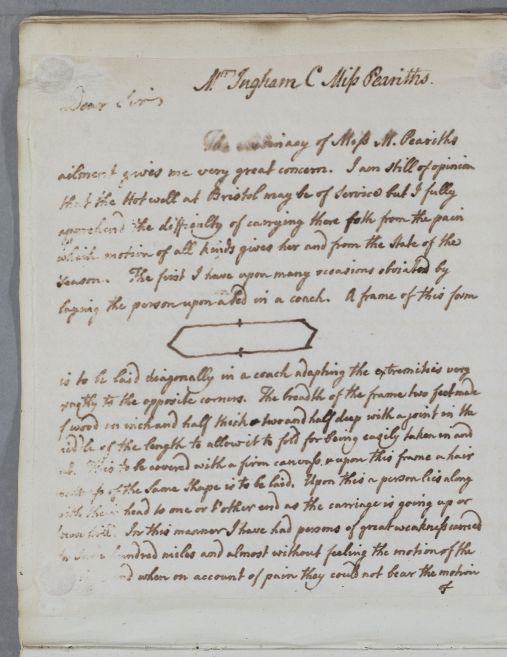 Mr Ingham C. Miss Peariths.
Dear Sir,
The obstinacy of Miss M. Peariths
ailment gives me very great concern. I am still of opinion
that the Hot well at Bristol may be of service but I fully
apprehend the difficulty of carrying there both from the pain
which motion of all kinds gives her and from the state of the
season. The first I have upon many occasions obviated by
laying the person upon a bed in a coach. A frame of this form
is to be laid diagonally in a coach adapting the extremities very
exactly to the opposite corners. The breadth of the frame two feet made
of wood an inch and half thick & two and half deep with a joint in the
middle of the length to allow it to fold for being easily taken in and
out. This to be covered with a firm canvass, & upon this frame a hair
mattress of the same shape is to be laid. Upon this a person lies along
with their head to one or tother end as the carriage is going up or
down hill. In this manner I have had persons of great weakness carried
hundred miles and almost without feeling the motion of the
and when on account of pain they could not bear the motion
of